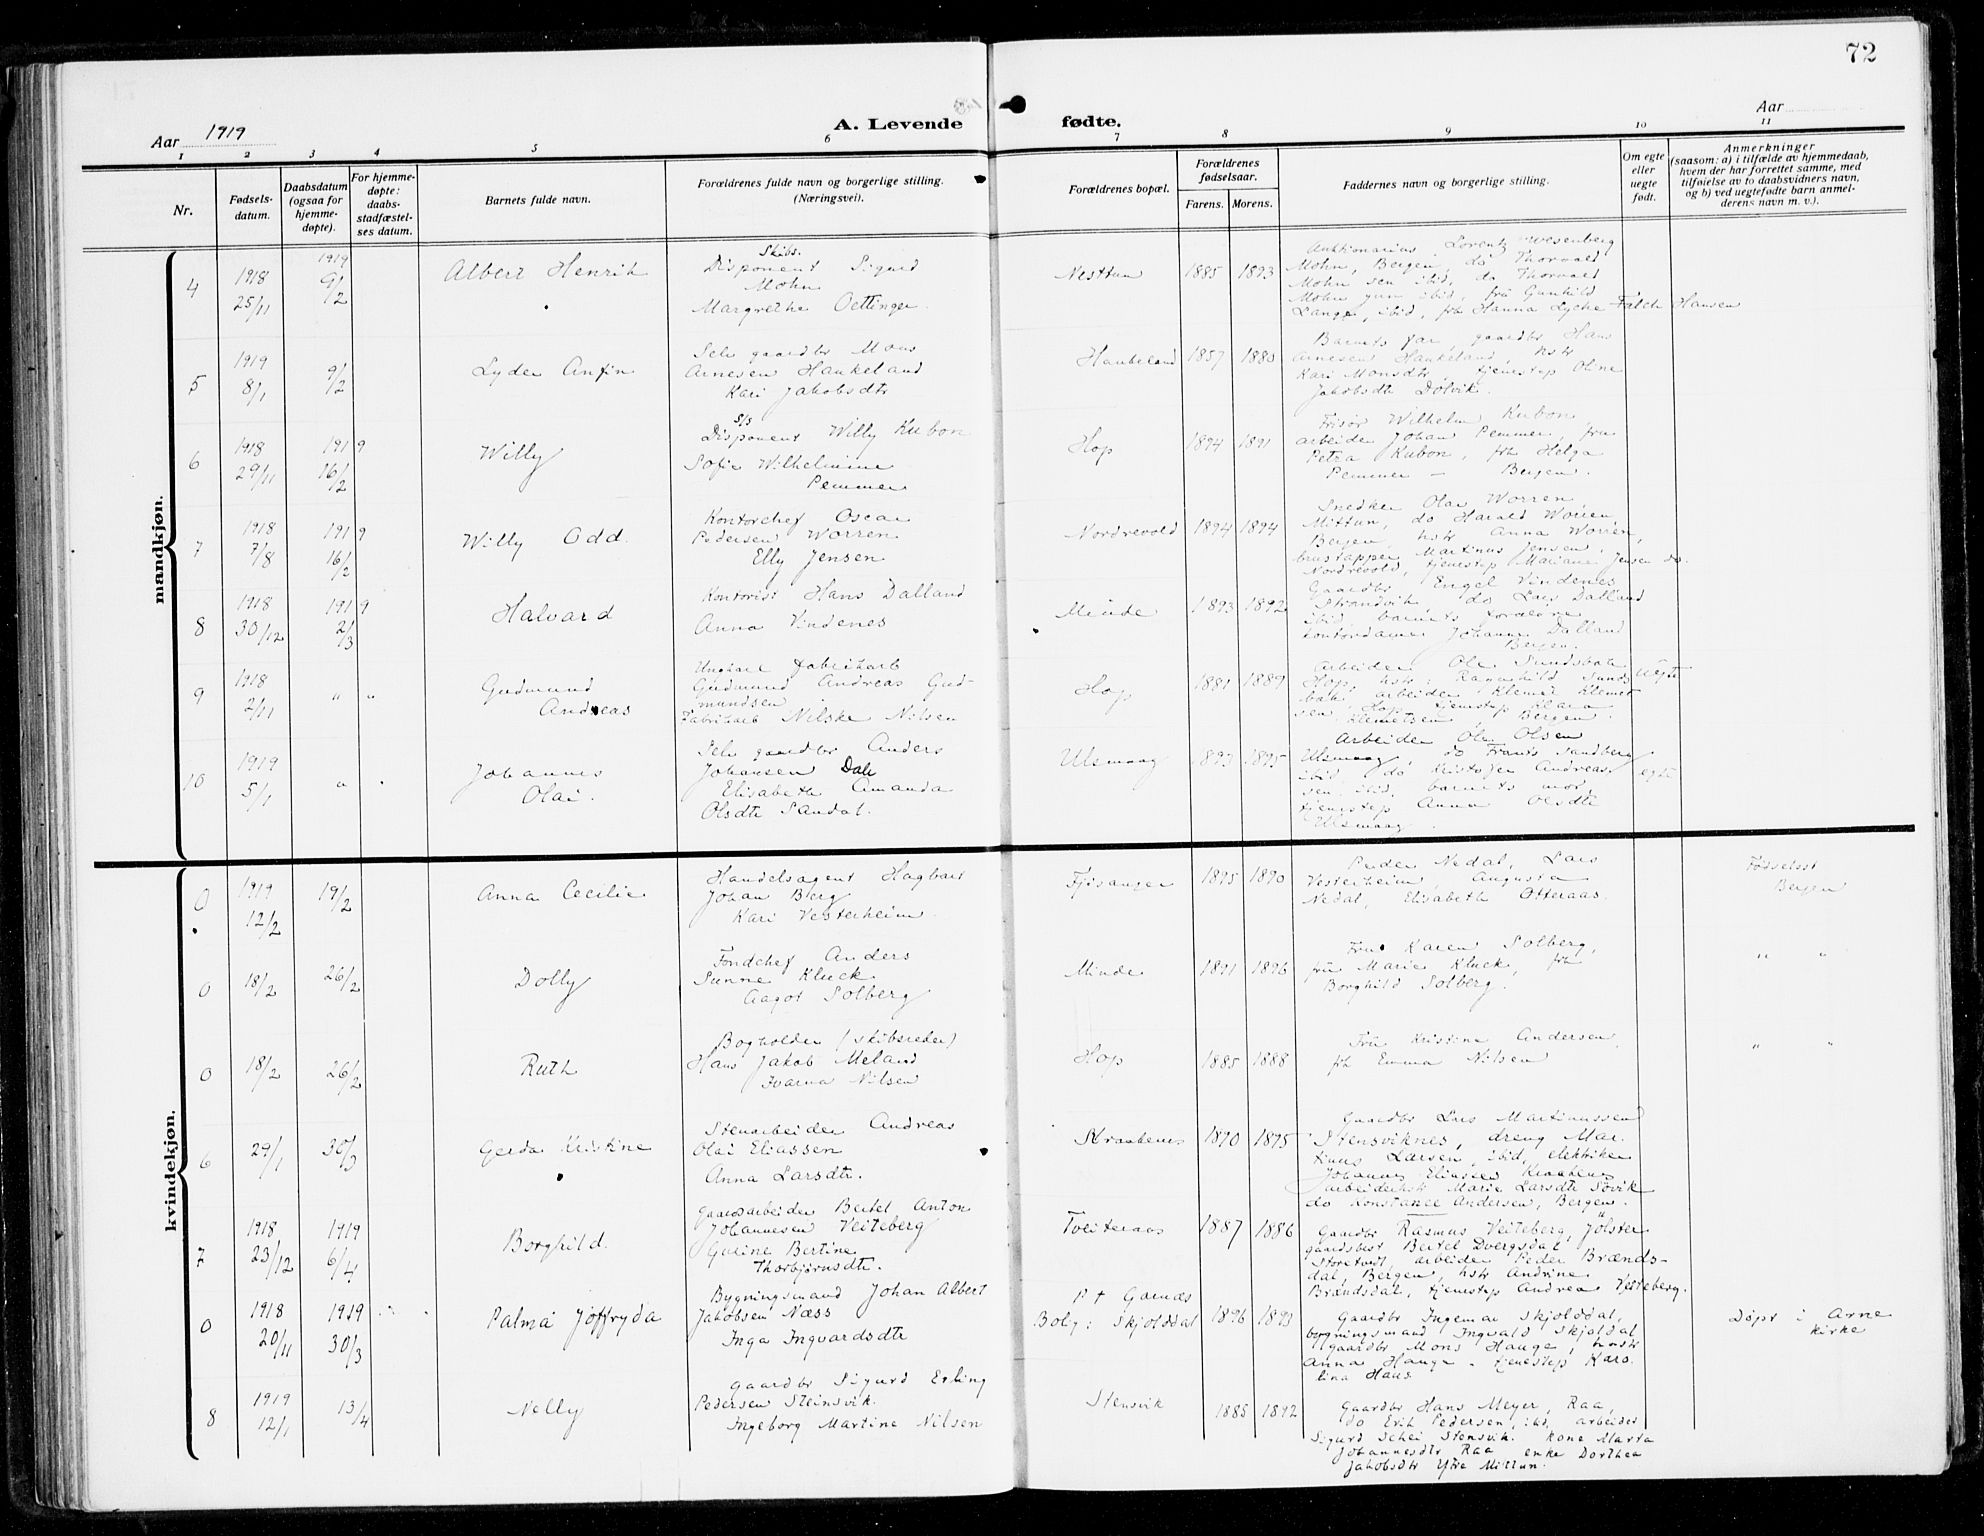 72
Aar 1919
A. Levende fødte.
Aar
1 2 3 4 5 6 7 8 9 10 11
Nr.
Fødsels-
datum.
Daabsdatum
(ogsaa for
hjemme-
døpte).
For hjemme-
døpte:
daabs-
stadfæstel-
ses datum.
Barnets fulde navn.
Forældrenes fulde navn og borgerlige stilling.
(Næringsvei).
Forældrenes bopæl.
Forældrenes
fødselsaar.
Farens. Morens.
Faddernes navn og borgerlige stilling.
Om egte
eller
uegte
født.
Anmerkninger
(saasom: a) i tilfælde av hjemmedaab,
hvem der har forrettet samme, med
tilføielse av to daabsvidners navn,
og b) ved uegtefødte barn anmel-
derens navn m. v.).
mandkjøn.
4
1918
25/11
1919
9/2
Albert Henrik
Skibs.
Disponent Sigurd
Mohn
Margrethe Oettinger
Nesttun
1885 1893
Auktionarius Lorentz Wesenberg
Mohn, Bergen, do Thorvald
Mohn sen ibid, do Thorvald
Mohn jun ibid, fru Gunhild
Lange, ibid, frk Hanna Lycke Falck Hansen
5
1919
8/1
9/2
Lyder Anfin
Selv gaardbr Mons
Arnesen Haukeland
Kari Jakobsdtr
Haukeland
1857 1880
Barnets far, gaardbr Hans
Arnesen Haukeland, hstr
Kari Monsdtr, tjenestep Oline
Jakobsdtr Dolvik.
6
1918
29/11
1919
16/2
Willy
S/S
Disponent Willy Kubon
Sofie Wilhelmine
Pemmer
Hop
1894 1891
Frisør Wilhelm Kubon,
arbeider Johan Pemmer, fru
Petra Kubon, frk Helga
Pemmer — Bergen.
7
1918
7/8
1919
16/2
Willy Odd.
Kontorchef Oscar
Pedersen Worren
Elly Jensen
Nordrevold
1894 1894
Snedker Olai Worren,
Mittun, do Harald Worren
Bergen, hstr Anna Worren,
Martinus Jensen,
Nordrevold, tjenestep Mariane Jensen do.
8
1918
30/12
1919
2/3
Halvard
Kontorist Hans Dalland
Anna Vindenes
Minde
1893 1892
Gaardbr Engel Vindenes
Strandvik, do Lars Dalland
ibid, barnets forældre
kontordame Johanne Dalland
Bergen.
9
1918
2/11
" "
Gudmund
Andreas
Ungkarl fabrikarb
Gudmund Andreas Gud-
mundsen
Fabrikarb Nilske Nilsen
Hop
1881 1889
Arbeider Ole Sundsbak
Hop, hstr: Ragnhild Sunds
bak, arbeider Klemet Klemet
sen, Hop, tjenestep Klara
Klemetsen, Bergen.
uegte
10
1919
5/1
"
Johannes
Olai.
Selv gaardbr Anders
Johansen Dale
Elisabeth Amanda
Olsdtr Sandal.
Ulsmaag
1893 1895
Arbeider Ole Olsen
Ulsmaag, do Frants Sandberg
ibid, do Kristofer Andreas-
sen ibid, barnets mor,
tjenestep Anna Olsdtr
Ulsmaag.
egte
kvindekjøn.
0
1919
12/2
19/2
Anna Cecilie
Handelsagent Hagbart
Johan Berg
Kari Vesterheim
Fjøsanger
1895 1890
Peder Nedal, Lars
Vesterheim, Augusta
Nedal, Elisabeth Otteraas.
Fødselsst
Bergen
0
18/2
26/2
Dolly
Fondchef Anders
Sunne Kluck
Aagot Solberg
Minde
1891 1896
Fru Karen Solberg,
fru Marie Kluck, frk
Borghild Solberg.
" "
0
18/2
26/2
Ruth
Bogholder (skibsreder)
Hans Jakob Meland
Ivarna Nilsen
Hop
1885 1888
Fru Kristine Andersen,
frk Emma Nilsen
" "
6
29/1
30/3
Gerda Kristine
Stenarbeider Andreas
Olai Eliassen
Anna Larsdtr.
Straabenes
1890 1895
Gaardbr Lars Martinussen
Stensviknes, dreng Mar-
tinus Larsen, ibid, elektriker
Johannes Eliassen
arbeiderhstr Marie Larsdtr Søvik
do Konstance Andersen, Bergen.
7
1918
23/12
1919
6/4
Borghild.
Gaardsarbeider Bertel Anton
Johannesen Veiteberg
Gurine Bertine
Thorbjørnsdtr.
Tveiteraas
1887 1886
Gaardbr Rasmus Veiteberg, Jølster
gaardsbest Bertel Dvergsdal
Storetveit, arbeider Peder Brænds-
dal, Bergen, hstr Andrine
Brændsdal, tjenestep Andrea Veiteberg.
0
1918
20/11
1919
30/3
Palma Joffryda
Bygningsmand Johan Albert
Jakobsen Næss
Inga Ingvardsdtr
P t Garnæs
Bolig: Skjolddal
1896 1893
Gaardbr Ingemar Skjolddal,
bygningsmand Ingvald Skjoldal
gaardbr Mons Hauge, hustr
Anna Hauge, tjenestep Karo-
lina Haus
Døpt i Arne
kirke
8
1919
12/1
13/4
Nelly
Gaardbr Sigurd Erling
Pedersen Steinsvik.
Ingeborg Martine Nilsen
Stensvik
1885 1892
Gaardbr Hans Meyer, Raa,
do Erik Pedersen, ibd, arbeider
Sigurd Schei Stensvik. kone Marta
Johannesdtr Raa enke Dorthea
Jakobsdtr Ytre Mittun.